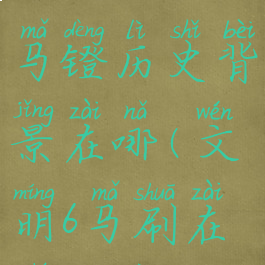 mǎ dèng lì shǐ bèi
马镫历史背
jǐng zài nǎ wén
景在哪(文
míng mǎ shuā zài
明6马刷在